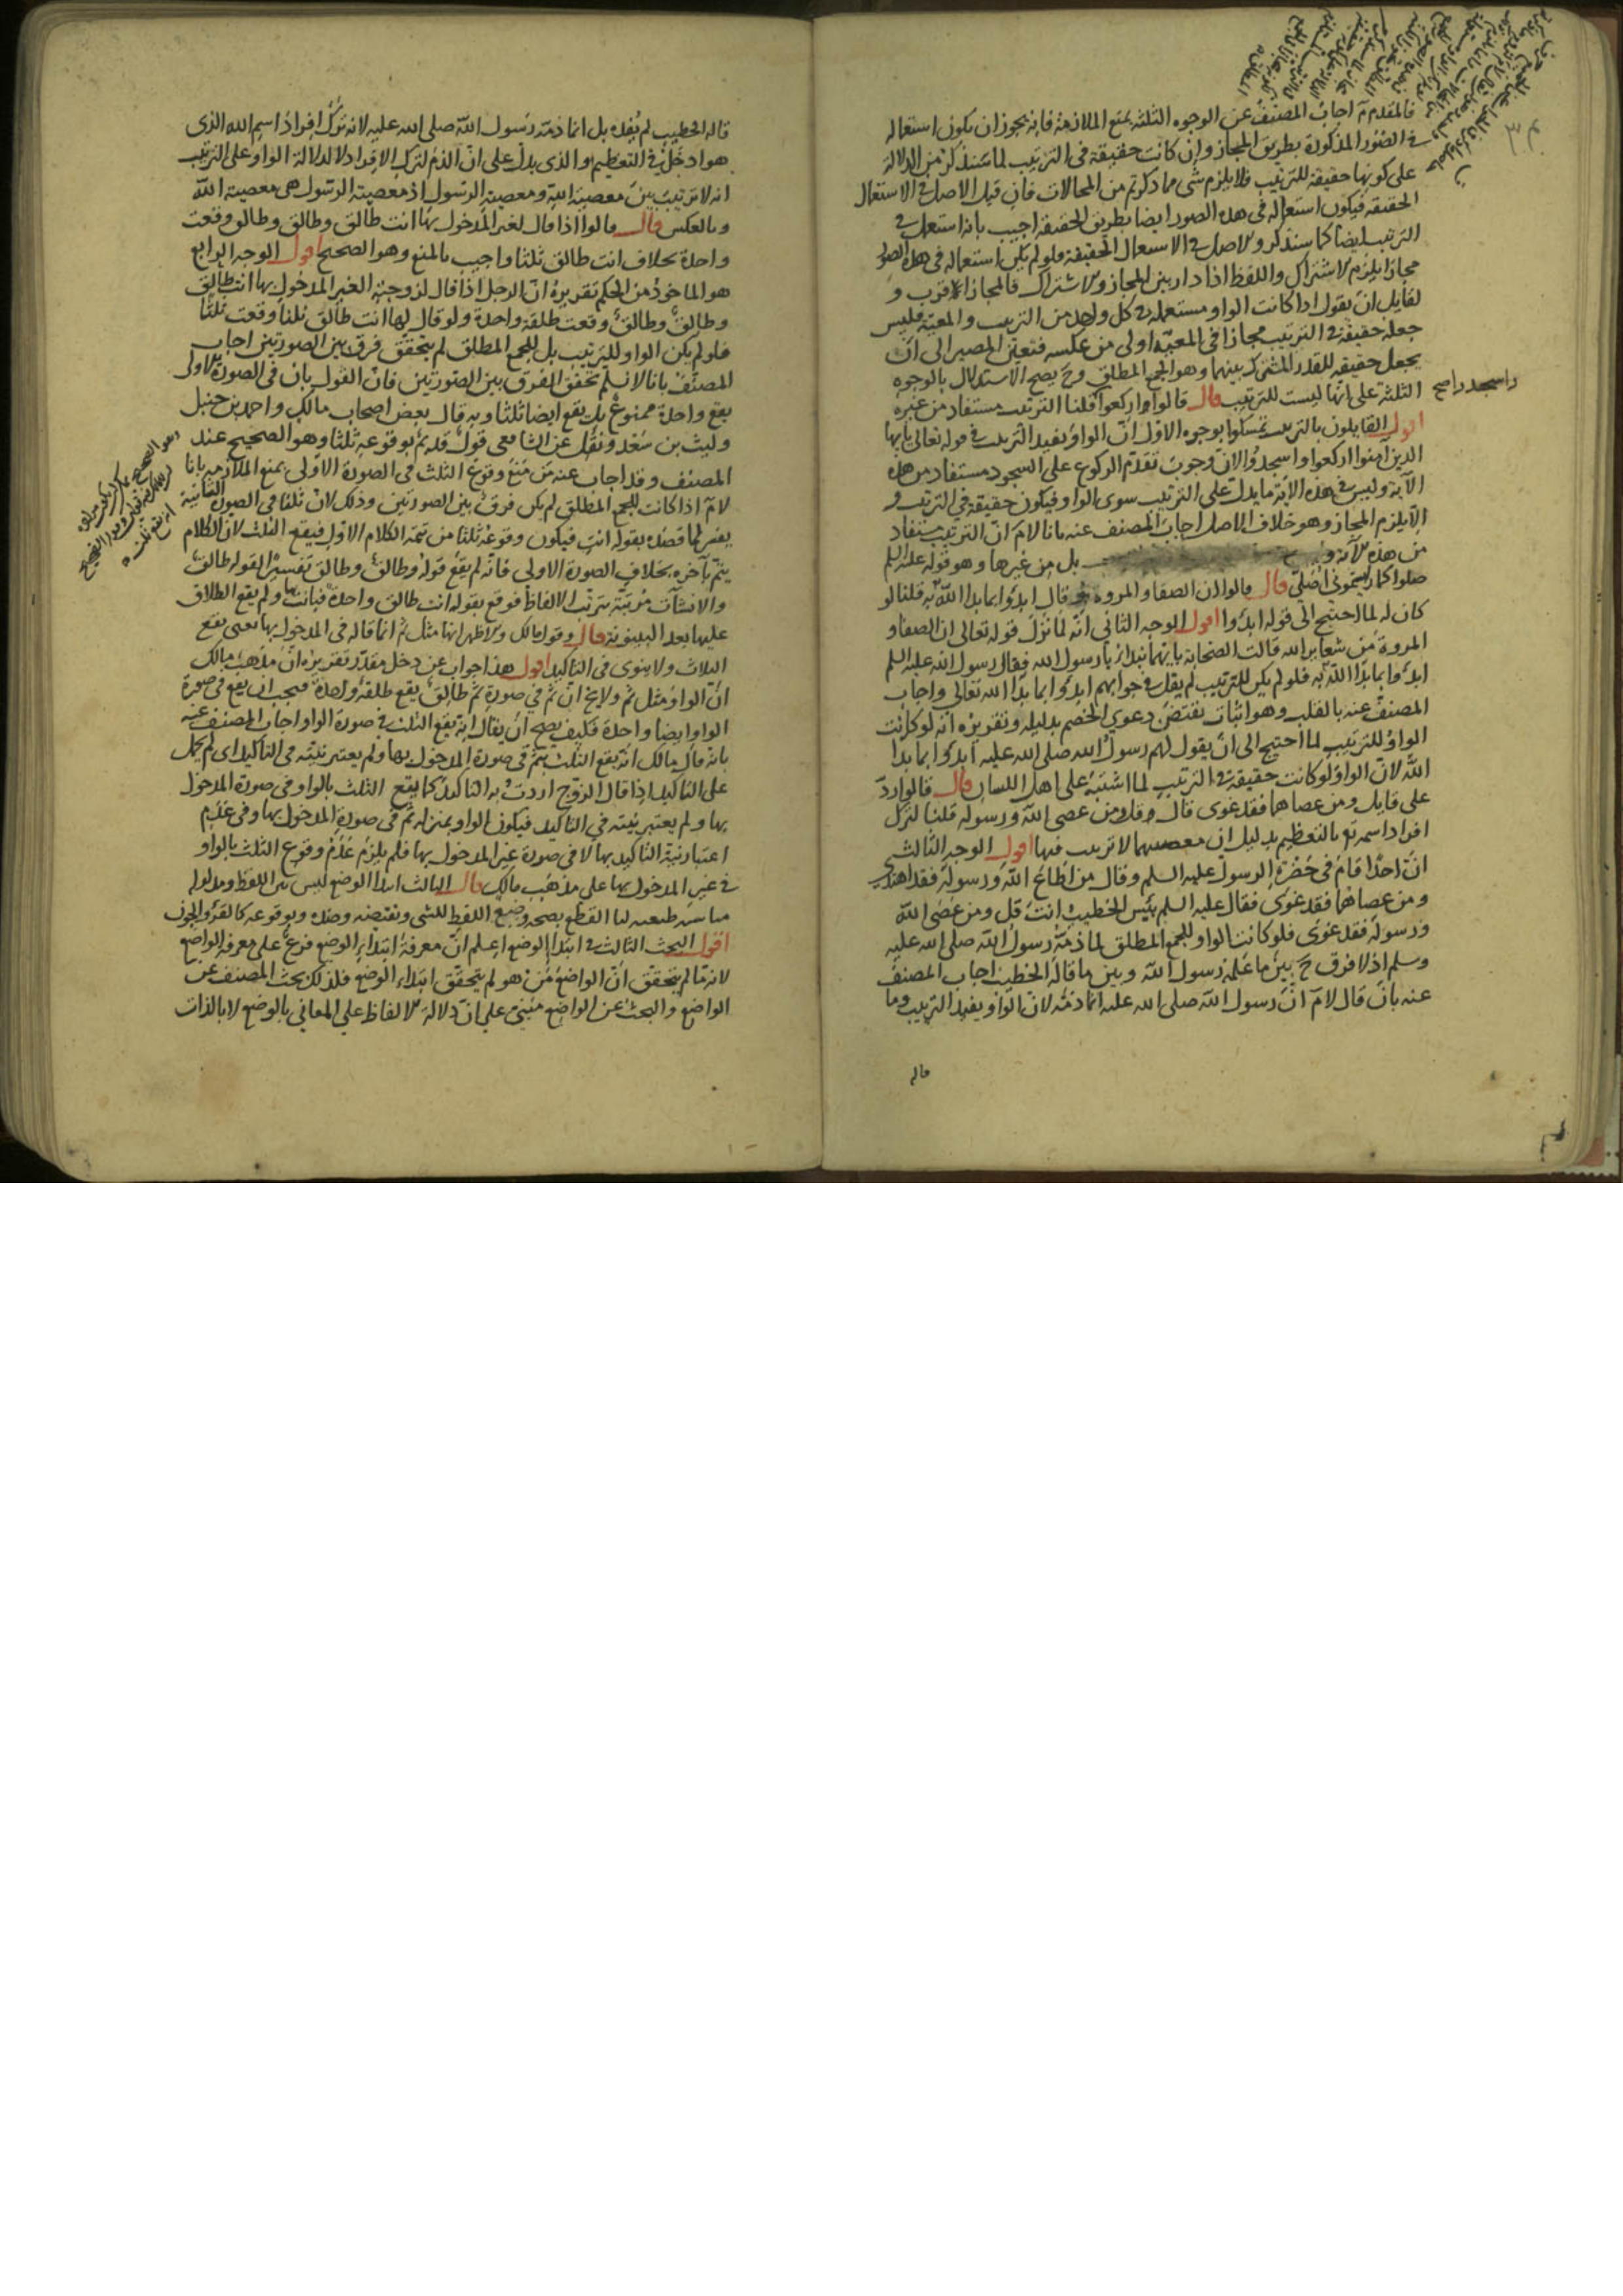 فالمقدم مّ اجاب المصنف عن الوجوه الثلثة بمنع الملازمة فانه يجوز ان يكون استعماله
في الصور المذكورة بطريق المجاز وان كانت حقيقة في الترتيب لما سنذكر من الدلالة
على كونها حقيقة للترتيب فلا يلزم شى مما ذكرتم من المحالات فان قيل الاصل في الاستعمال
الحقيقة فيكون استعماله في هذه الصور ايضا بطريق الحقيقة اجيب بانه استعمل في
الترتيب ايضا كما سنذكر والاصل في الاستعمال الحقيقة فلو لم يكن استعماله في هذه الصور
مجازا يلزم الاشتراك واللفظ اذا دار بين المجاز والاشتراك فالمجاز اقرب و
لقايل ان يقول اذا كانت الواو مستعملة في كل واحد من الترتيب والمعية فليس
جعله حقيقة في الترتيب مجازا في المعية اولى من عكسه فتعين المصير الى ان
يجعل حقيقة للقدر المشترك بينهما وهو الجمع المطلق وح يصح الاستدلال بالوجوه
الثلثة على انها ليست للترتيب قال قالوا اركعوا قلنا الترتيب مستفاد من غيره
واسجدوا صح
اقول القايلون بالترتيب تمسكوا بوجوه الاول ان الواو يفيد الترتيب في قوله تعالى يايها
الذين آمنوا اركعوا واسجدوا لان وجوب تقدم الركوع على السجود مستفاد من هذه
الآية وليس في هذه الآية ما يدل على الترتيب سوى الواو فيكون حقيقة في الترتيب و
الا يلزم المجاز وهو خلاف الاصل اجاب المصنف عنه بانا لا مّ ان الترتيب مستفاد
من هذه الآية و بل من غيرها وهو قوله عليه السلم
صلوا كما رايتموني اصلي قال قالوا ان الصفا والمروة قال ابدؤا بما بدا الله به قلنا لو
كان له لما احتيج الى قوله ابدؤا اقول الوجه الثاني انه لما نزل قوله تعالى ان الصفا و
المروة من شعاير الله قالت الصحابة بايهما نبدا يا رسول الله فقال رسول الله عليه السلم
ابدؤا بما بدا الله به فلو لم يكن للترتيب لم يقل في جوابهم ابدؤا بما بدا الله تعالى واجاب
المصنف عنه بالقلب وهو اثبات نقيض دعوي الخصم بدليله وتقريره انه لو كانت
الواو للترتيب لما احتيج الى ان يقول لهم رسول الله صلى الله عليه ابدؤا بما بدا
الله لان الواو لو كانت حقيقة في الترتيب لما اشتبه على اهل اللسان قال قالوا ردّ
على قايل ومن عصاهما فقد غوى قال قل ومن عصى الله ورسوله قلنا لترك
افراد اسمه تع بالتعظيم بدليل ان معصيتهما لا ترتيب فيها اقول الوجه الثالث
ان احدا قام في حضرة الرسول عليه السلم وقال من اطاع الله ورسوله فقد اهتدى
ومن عصاهما فقد غوى فقال عليه السلم بئس الخطيب انت قل ومن عصى الله
ورسوله فقد غوى فلو كانت الواو للجمع المطلق لما ذمه رسول الله صلى الله عليه
وسلم اذ لا فرق ح بين ما علمه رسول الله وبين ما قاله الخطيب اجاب المصنف
عنه بان قال لا مّ ان رسول الله صلى الله عليه انما ذمه لان الواو يفيد الترتيب وما
قاله
قاله الخطيب لم يفده بل انما ذمه رسول الله صلى الله عليه لانه ترك افراد اسم الله الذى
هو ادخل في التعظيم والذى يدل على ان الذم لترك الافراد لا لدلالة الواو على الترتيب
انه لا ترتيب بين معصية الله ومعصية الرسول اذ معصية الرسول هى معصية الله
وبالعكس قال قالوا اذا قال لغير المدخول بها انت طالق وطالق وطالق وقعت
واحدة بخلاف انت طالق ثلثا واجيب بالمنع وهو الصحيح اقول الوجه الرابع
هو الماخوذ من الحكم تقريره ان الرجل اذا قال لزوجته الغير المدخول بها انت طالق
وطالق وطالق وقعت طلقة واحدة ولو قال لها انت طالق ثلثا وقعت ثلثا
فلو لم يكن الواو للترتيب بل للجمع المطلق لم يتحقق فرق بين الصورتين اجاب
المصنف بانا لا نسلم تحقق الفرق بين الصورتين فان القول بان في الصورة الاولى
يقع واحدة ممنوع بل يقع ايضا ثلثا وبه قال بعض اصحاب مالك واحمد بن حنبل
وليث بن سعد ونقل عن الشافعي قول قديم بوقوعه ثلثا وهو الصحيح عند
المصنف وقد اجاب عنه من منع وقوع الثلث في الصورة الاولى بمنع الملازمة بانا
لا مّ اذا كانت للجمع المطلق لم يكن فرق بين الصورتين وذلك لان ثلثا في الصورة الثانية
يفسر لما قصده بقوله انت فيكون وقوعه ثلثا من تتمة الكلام الاول فيقع الثلث لان الكلام
يتم بآخره بخلاف الصورة الاولى فانه لم يقع قوله وطالق وطالق تفسيرا لقوله طالق
والانشاآت مرتبة بترتب الالفاظ فوقع بقوله انت طالق واحدة فبانت بها ولم يقع الطلاق
عليها بعد البينونة قال وقول مالك والاظهر انها مثل ثم انما قاله في المدخول بها يعنى يقع
الثلاث ولا ينوى في التاكيد اقول هذا جواب عن دخل مقدر تقريره ان مذهب مالك
ان الواو مثل ثم ولا يخ ان ثم في صورة ثم طالق يقع طلقة واحدة فيجب ان يقع في صورة
الواو ايضا واحدة فكيف يصح ان يقال انه يقع الثلث في صورة الواو اجاب المصنف عنه
بانه قال مالك انه يقع الثلث بثم في صورة المدخول بها ولم يعتبر نيته في التاكيد اى لم يحمل
على التاكيد اذا قال الزوج اردت به التاكيد كما يقع الثلث بالواو في صورة المدخول
بها ولم يعتبر نيته في التاكيد فيكون الواو بمنزلة ثم في صورة المدخول بها وفي عدم
اعتبار نية التاكيد بها لا في صورة غير المدخول بها فلم يلزم عدم وقوع الثلث بالواو
في غير المدخول بها على مذهب مالك قال الثالث ابتدا الوضع ليس بين اللفظ ومدلوله
مناسبة طبيعية لنا القطع بصحة وضع اللفظ للشى ونقيضه وضده وبوقوعه كالقرء والجون
اقول البحث الثالث في ابتدا الوضع اعلم ان معرفة ابتداء الوضع فرع على معرفة الواضع
لانه ما لم يتحقق ان الواضع من هو لم يتحقق ابتداء الوضع فلذلك بحث المصنف عن
الواضع والبحث عن الواضع مبنى على ان دلالة الالفاظ على المعاني بالوضع لا بالذات